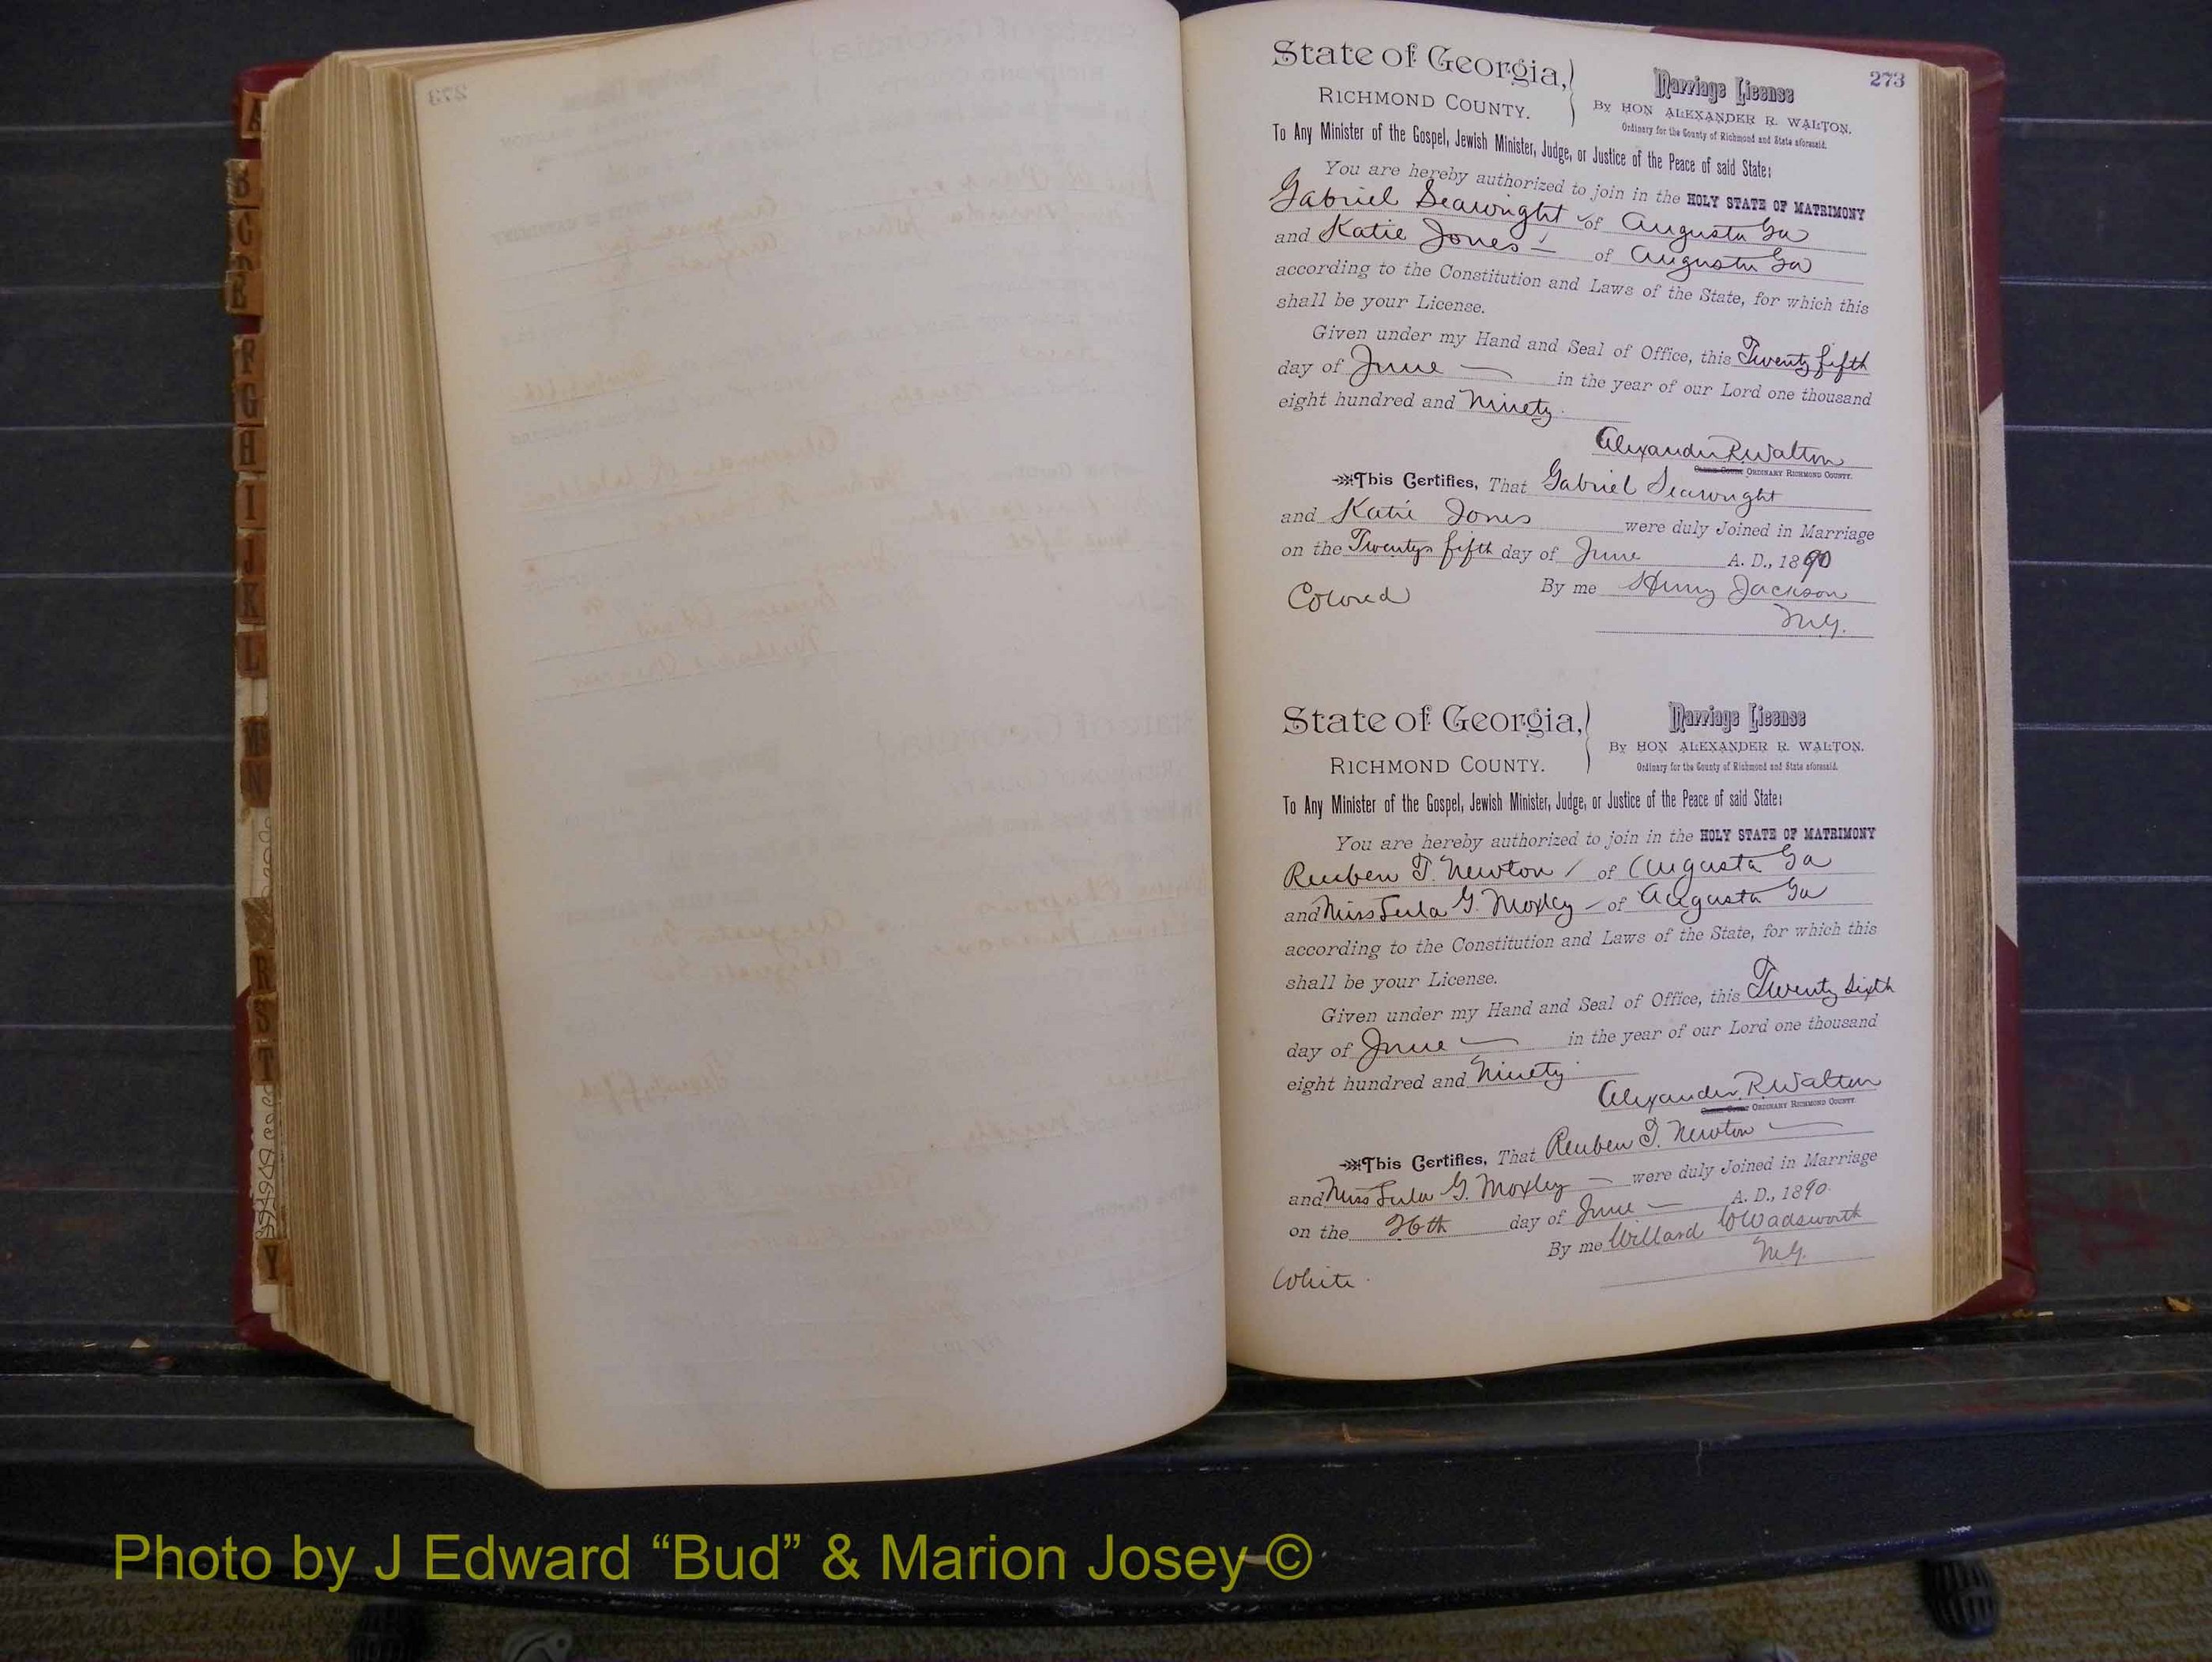 273
State of Georgia,
RICHMOND COUNTY.
Marriage License
By HON. ALEXANDER R. WALTON,
Ordinary for the County of Richmond and State aforesaid.
To Any Minister of the Gospel, Jewish Minister, Judge, or Justice of the Peace of said State:
You are hereby authorized to join in the HOLY STATE OF MATRIMONY
Gabriel Seawright of Augusta Ga
and Katie Jones of Augusta Ga
according to the Constitution and Laws of the State, for which this
shall be your License.
Given under my Hand and Seal of Office, this Twenty fifth
day of June in the year of our Lord one thousand
eight hundred and Ninety.
Alexander R Walton
ORDINARY RICHMOND COUNTY.
This Certifies, That Gabriel Seawright
and Katie Jones were duly Joined in Marriage
on the Twenty fifth day of June A. D., 1890
Colored By me Henry Jackson
M.G.
State of Georgia,
RICHMOND COUNTY.
Marriage License
By HON ALEXANDER R. WALTON.
Ordinary for the County of Richmond and State aforesaid.
To Any Minister of the Gospel, Jewish Minister, Judge, or Justice of the Peace of said State:
You are hereby authorized to join in the HOLY STATE OF MATRIMONY
Reuben T. Newton of Augusta Ga
and Miss Lula G. Moxley of Augusta Ga
according to the Constitution and Laws of the State, for which this
shall be your License.
Given under my Hand and Seal of Office, this Twenty Sixth
day of June in the year of our Lord one thousand
eight hundred and Ninety
Alexander R Walton
ORDINARY RICHMOND COUNTY.
This Certifies, That Reuben T. Newton
and Miss Lula G. Moxley were duly Joined in Marriage
on the 26th day of June A. D., 1890.
By me Willard W Wadsworth
M.G.
White.
Photo by J Edward “Bud” & Marion Josey ©